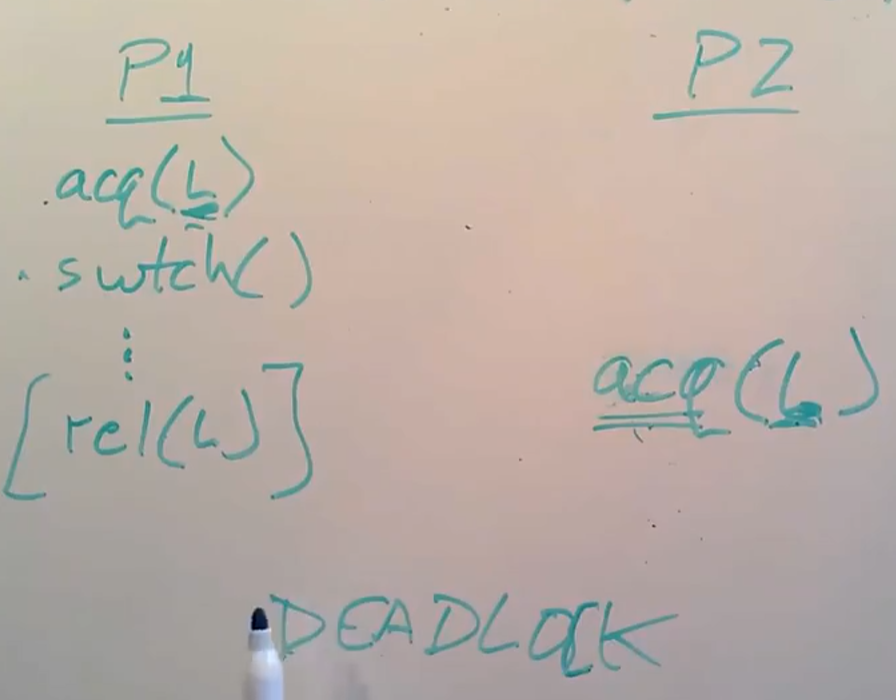 P1
P2
acq(L)
swtch()
⋮
[rel(L)]
acq(L)
DEADLOCK